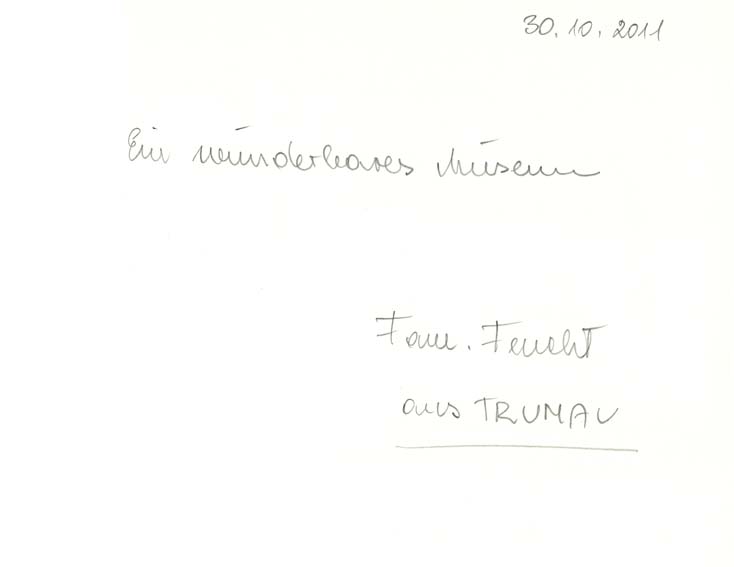 30.10.2011
Ein wunderbares Museum
Fam. Feucht
aus TRUMAU